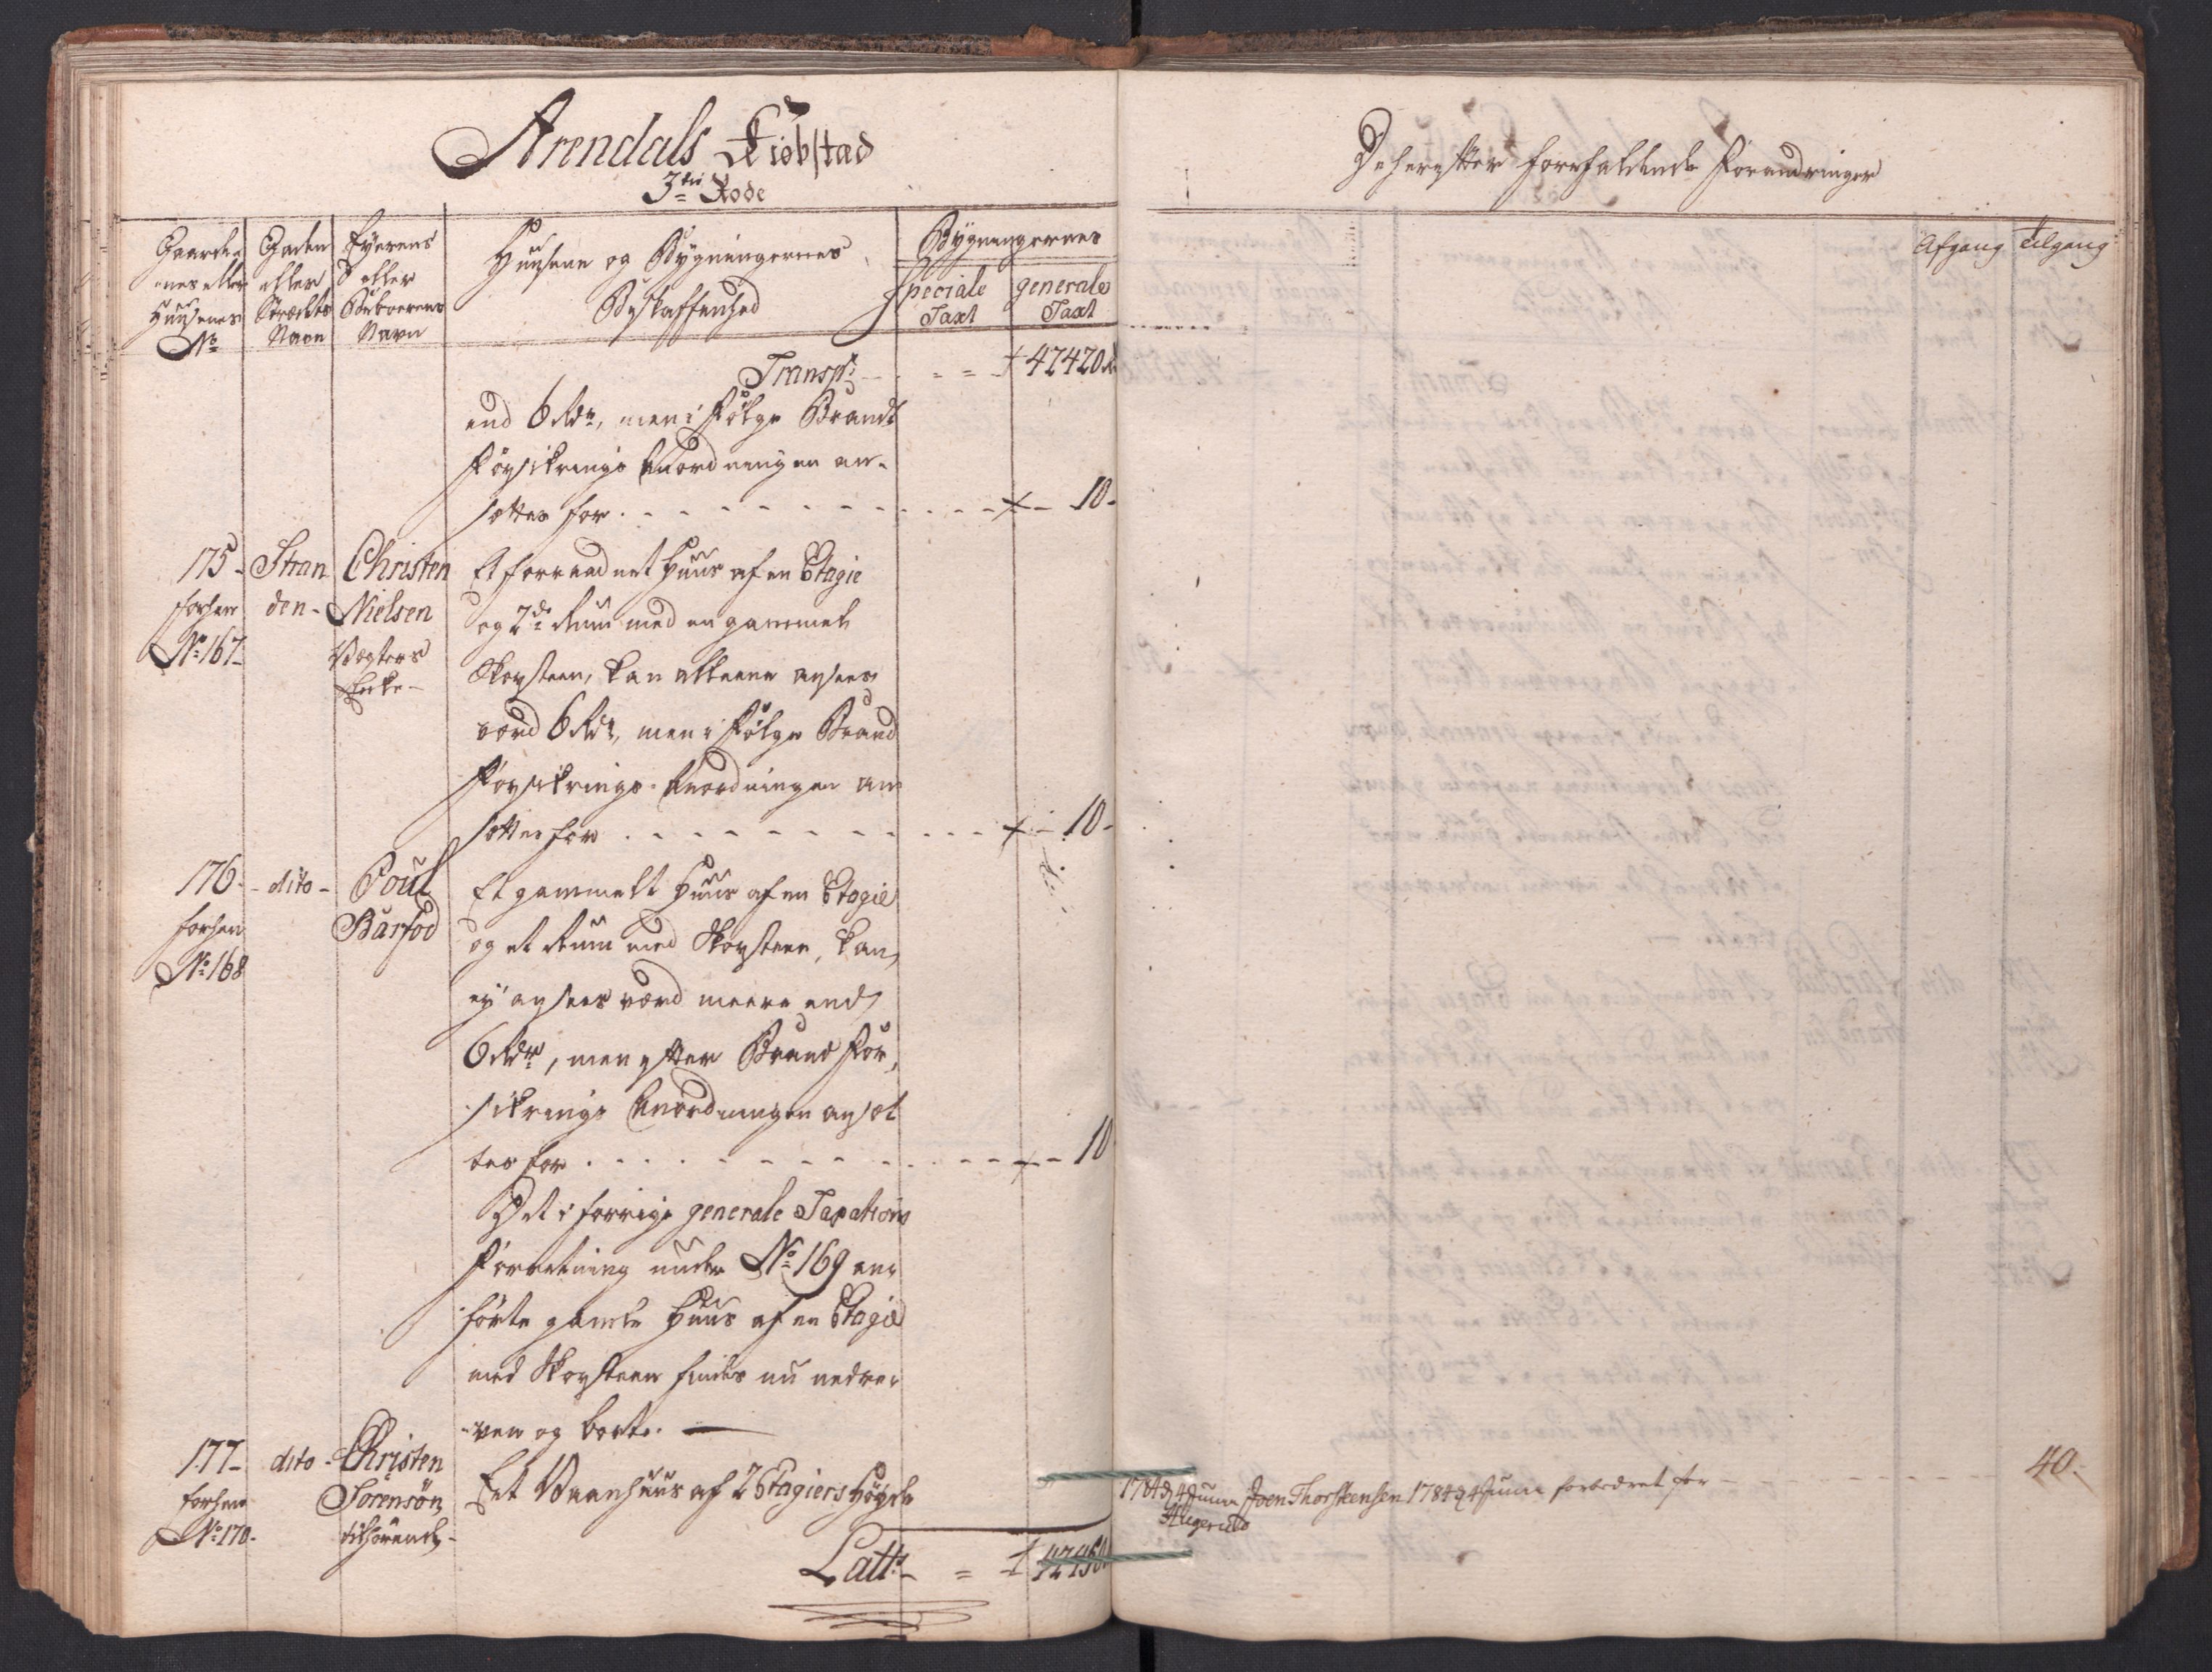 Arendals Kiøbstad
3die Rode
Gaarde-
nes eller
Huusenes
No
Gaden
eller
Strædets
Navn
Eyerens
eller
Beboerens
Navn
Huusene og Bygningernes
Beskaffenhed
Bygningernes
speciale
Taxt
generale
Taxt
Transpt - - = = 42420
end 6 Rdr, men i Følge Brand
Forsikrings Anordningen an-
sættes for - - - - - - - - 10-
175-
forhen
No 167-
Stran
den-
Christen
Nielsen
Vegters
Enke-
Et forraadnet Huus af en Etagie
og 2de Rum med en gammel
Skorsteen, kan allene ansees
værd 6 Rdr, men i Følge Brand
Forsikrings-Anordningen an
sættes for - - - - - - - - 10-
176-
forhen
No 168
-dito-
Poul
Barfod
Et gammelt Huus af en Etagie
og et Rum med Skorsteen, kan
ey ansees værd meere end
6 Rdr, men efter Brand For-
sikrings Anordningen ansæt
tes for - - - - - - - - 10
Det i forrige generale Taxations
Forretning under No 169 an-
førte gamle Huus af en Etagie
med Skorsteen findes nu nedre-
ven og borte. —
177-
forhen
No 170-
dito-
Christen
Sørensøn
tilhørende-
Eet Vaanhuus af 2 Etagiers Høyde
Latt - = 42450
Deherefter forefaldende Forandringer
Afgang
Tilgang
1784 d 4 Junii Joen Thorsteensen 1784 d 4 Junii forbedret for - - - - - 40-